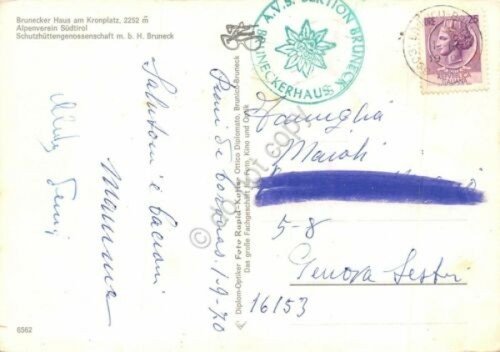 Brunecker Haus am Kronplatz, 2252 m
Alpenverein Südtirol
Schutzhüttengenossenschaft m. b. H. Bruneck
A.V.S. SEKTION BRUNECK
BRUNECKERHAUS
25
1-9-70
Salutoni e bacioni
Mamma
Diplom-Optiker Foto Rapid-Kuttin Ottico Diplomato, Brunico-Bruneck
Das große Fachgeschäft für Foto, Kino und Optik
Famiglia
5-8
Genova Sestri
16153
6562
do not copy